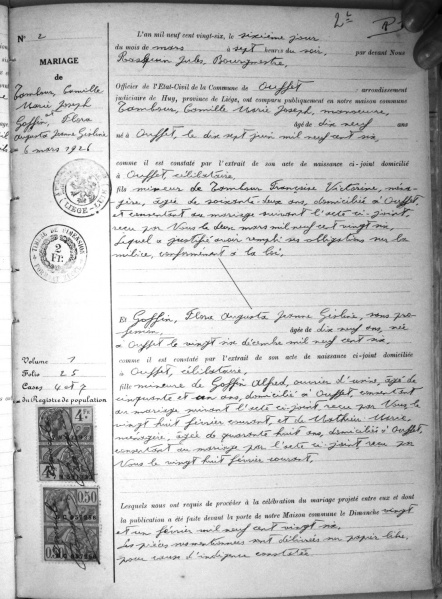 N° 2
MARIAGE
de
Tambour, Camille
Marie Joseph
et
Goffin, Flora
Augusta Jeanne Ghislaine
6 mars 1926
2 FR.
Volume 1
Folio 25
Cases 4 et 7
du Registre de population
4 F
0,50
L'an mil neuf cent vingt-six, le sixième jour
du mois de mars à sept heures du soir, par devant Nous
Jules, Bourgmestre,
Officier de l'Etat-Civil de la Commune de Ouffet arrondissement
judiciaire de Huy, province de Liége, ont comparu publiquement en notre maison commune
Tambour, Camille Marie Joseph, manœuvre,
âgé de dix neuf ans
né à Ouffet, le dix sept juin mil neuf cent six,
comme il est constaté par l'extrait de son acte de naissance ci-joint domicilié
à Ouffet célibataire,
fils mineur de Tambour Françoise Victorine, ména-
gère, âgée de soixante deux ans, domiciliée à Ouffet,
et consentant au mariage suivant l'acte ci-joint
reçu par Nous le deux mars mil neuf cent vingt six,
lequel a justifié avoir rempli ses obligations sur la
milice, conformément à la loi,
Et Goffin, Flora Augusta Jeanne Ghislaine, sans pro-
fession, âgée de dix neuf ans, née
à Ouffet le vingt six décembre mil neuf cent six,
comme il est constaté par l'extrait de son acte de naissance ci-joint domiciliée
à Ouffet, célibataire,
fille mineure de Goffin Alfred, ouvrier d'usine, âgé de
cinquante et un ans, domicilié à Ouffet, consentant
au mariage suivant l'acte ci-joint reçu par Nous le
vingt huit février courant, et de Mathieu Marie,
ménagère, âgée de quarante huit ans, domiciliée à Ouffet,
consentant au mariage par l'acte ci-joint reçu par
Nous le vingt huit février courant,
Lesquels nous ont requis de procéder à la célébration du mariage projeté entre eux et dont
la publication a été faite devant la porte de notre Maison commune le Dimanche vingt
et un février mil neuf cent vingt six.
Les pièces mentionnées sont délivrées sur papier libre,
pour cause d'indigence constatée.